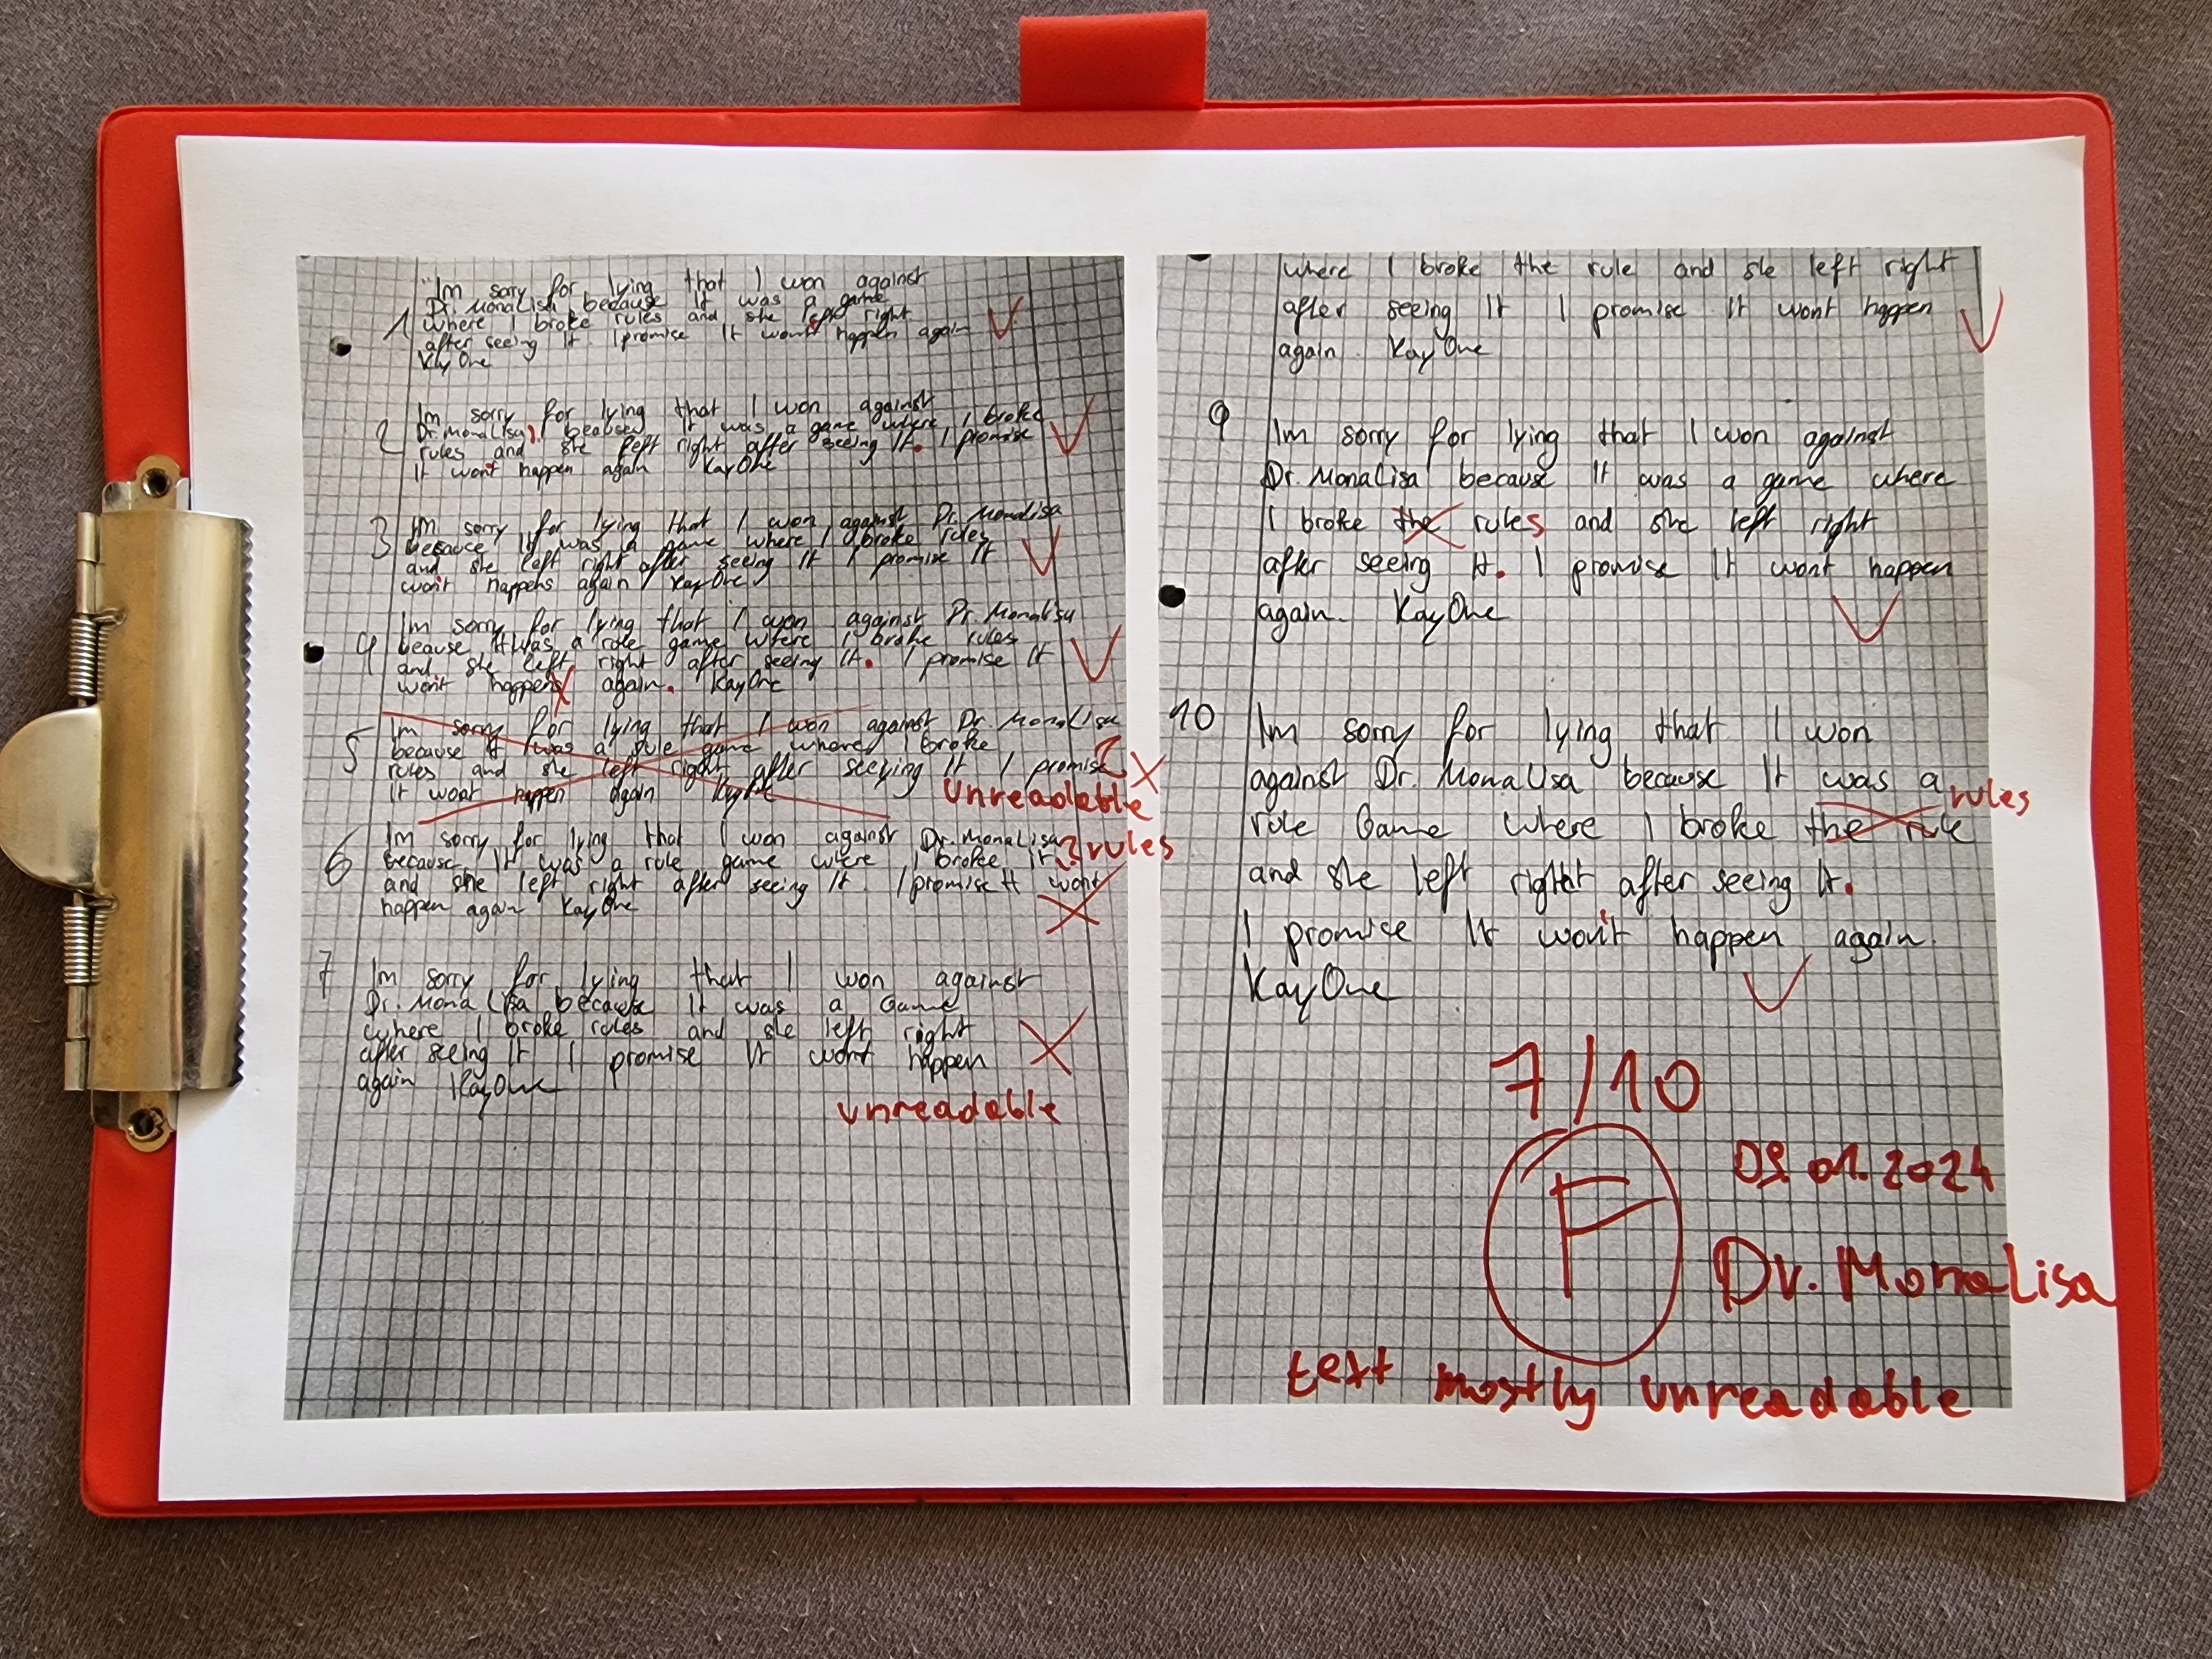 "Im sorry for lying that I won against
Dr. MonaLisa because It was a game
1 where I broke rules and she left right
after seeing It. I promise It won't happen again
KayOne
Im sorry for lying that I won against
2 Dr. MonaLisa, beause It was a game where I broke
rules and she left right after seeing It. I promise
It won't happen again KayOne
3 Im sorry for lying that I won against Dr. MonaLisa
because It was a game where I broke rules
and she left right after seeing It I promise It
won't happens again KayOne
Im sorry for lying that I won against Dr. MonaLisa
4 beause It was a role game where I broke rules
and she left right after seeing It. I promise It
won't happens again. KayOne
5 Im sorry for lying that I won against Dr. MonaLisa
because It was a rule game where I broke
rules and she left right after seeying It I promise
It wont happen again KayOne
unreadable
6 Im sorry for lying that I won against Dr. MonaLisa
because It was a role game where I broke It ? rules
and she left right after seeing It. I promise It wont
happen again KayOne
7 Im sorry for lying that I won against
Dr. MonaLisa because It was a Game
where I broke rules and she left right
after seeing It I promise It wont happen
again KayOne
unreadable
where I broke the rule and she left right
after seeing It I promise It wont happen
again. KayOne
9 Im sorry for lying that I won against
Dr. MonaLisa because It was a game where
I broke the rules and she left right
after seeing It. I promise It wont happen
again. KayOne
10 Im sorry for lying that I won
against Dr. MonaLisa because It was a
rules
role Game where I broke the rule
and she left right after seeing It.
I promise It won't happen again.
KayOne
7/10
09.01.2024
F
Dr. MonaLisa
text mostly unreadable